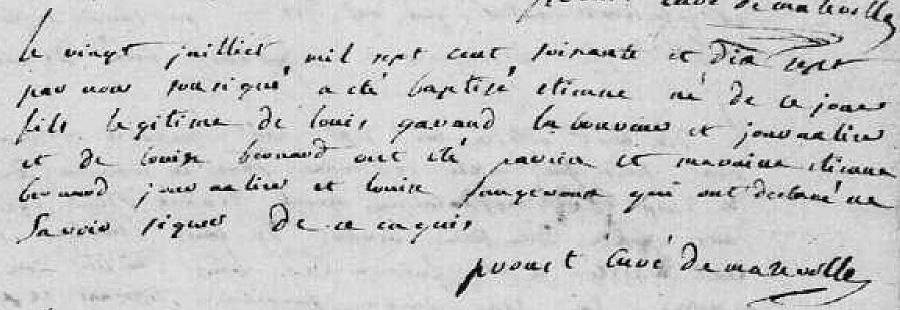 curé de mareville
le vingt juilliet mil sept cent soixante et dix sept
par nous sousigné a eté baptisé etienne né de ce jour
fils legitime de louis gavand laboureur et journalier
et de louise bernard ont eté parain et maraine etienne
bernard journalier et louise qui ont declaré ne
savoir signer de ce enquis
prouet curé de mareville